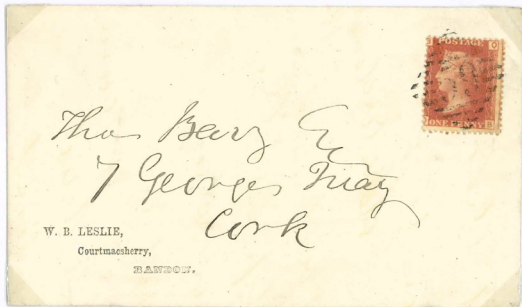 POSTAGE
ONE PENNY
Thos Beary Esq
7 Georges Quay
Cork
W. B. LESLIE,
Courtmacsherry,
BANDON.